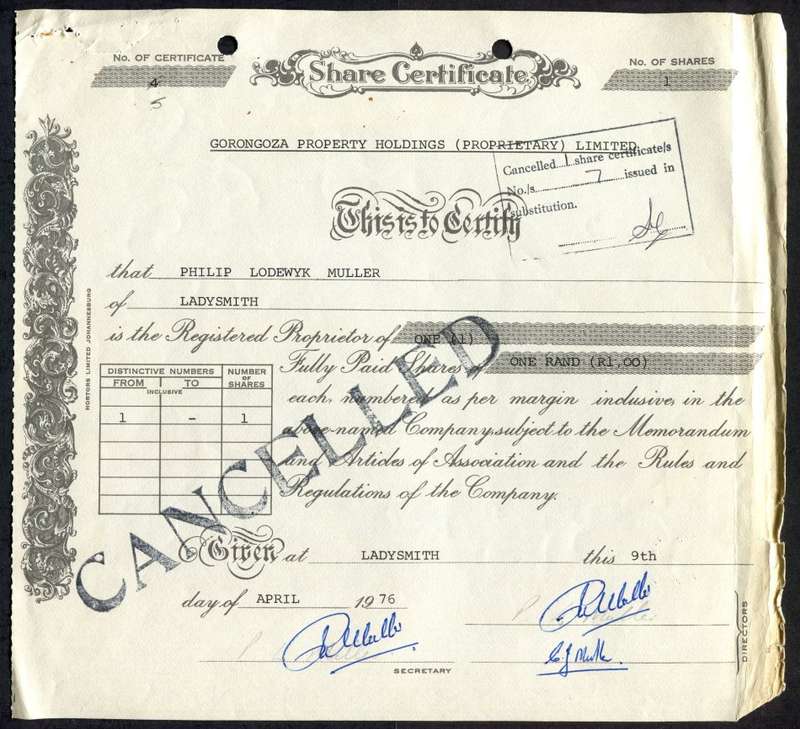 No. OF CERTIFICATE
4
5
Share Certificate
No. OF SHARES
1
GORONGOZA PROPERTY HOLDINGS (PROPRIETARY) LIMITED
Cancelled 1 share certificate/s
No./s 7 issued in
substitution.
This is to Certify
that PHILIP LODEWYK MULLER
of LADYSMITH
is the Registered Proprietor of ONE (1)
Fully Paid Shares of ONE RAND (R1,00)
each, numbered as per margin inclusive, in the
above-named Company, subject to the Memorandum
and Articles of Association and the Rules and
Regulations of the Company.
DISTINCTIVE NUMBERS NUMBER OF SHARES
FROM TO
INCLUSIVE
1 - 1
HORTORS LIMITED JOHANNESBURG
CANCELLED
Given at LADYSMITH this 9th
day of APRIL 1976
SECRETARY
DIRECTORS